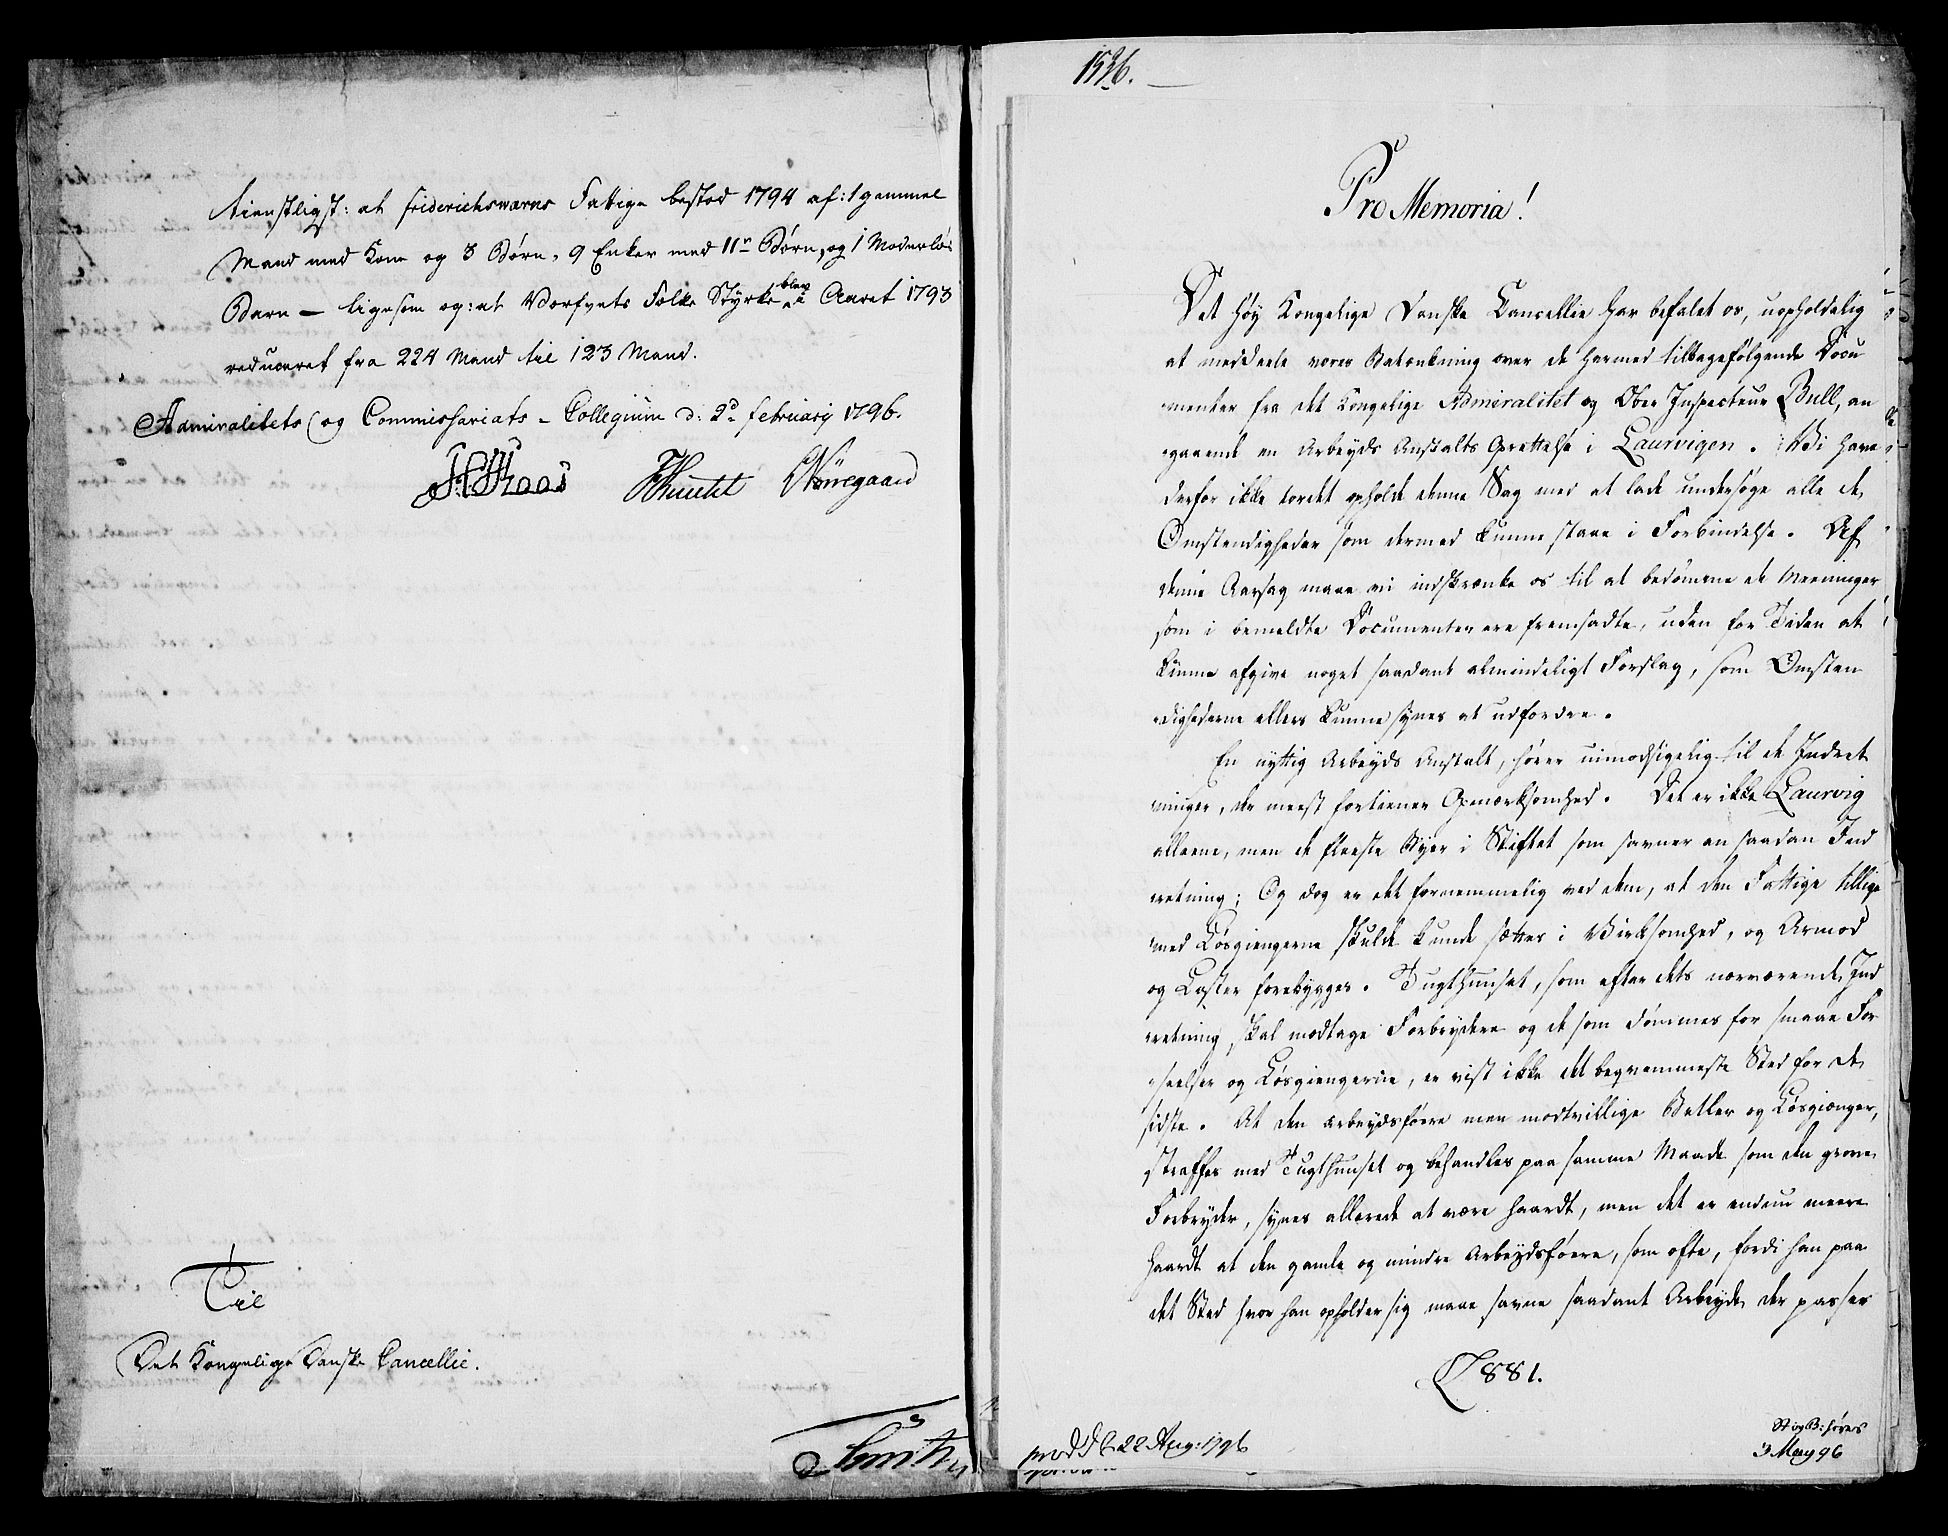 tienstligst: at Friderichswærns Fattige bestod 1794 af: 1 gammel
Mand med Kone og 3 Børn, 9 Enker med 11 Børn, og 1 Moderløs
Barn — ligesom og: at Værfvets Folke Styrke blev i Aaret 1793
reduceret fra 224 Mand til 123 Mand.
Admiralitets og Commissariats-Collegium d: 2d February 1796.
Knuth Nörregaard
Til
Det Kongelige Danske Cancellie.
Smith
1536.
Pro Memoria!
Det Høy Kongelige Danske Cancellie har befalet os, uopholdelig
at meddeele vores Betænkning over de hermed tilbagefølgende Docu
menter fra det Kongelige Admiralitet og Ober Inspecteur Bull, an
gaaende en Arbeyds Anstalts Oprettelse i Laurvigen. Vi have
derfor ikke tordet opholde denne Sag med at lade undersøge alle de
Omstendigheder som dermed kunne staae i Forbindelse. Af
denne Aarsag maae vi indskrænke os til at bedømme de Meeninger
som i bemeldte Documenter ere fremsadte, uden for Tiden at
kunne afgive noget saadant almindeligt Forslag, som Omsten
dighederne ellers kunne synes at udfordre.
En nyttig Arbeyds Anstalt, hører uimodsigelig til de Indret
ninger, der meest fortiener Opmærksomhed. Det er ikke Laurvig
alleene, men de fleeste Byer i Stiftet som savner en saadan Ind
retning; Og dog er det fornemmelig ved dem, at den Fattige tillige
med Løsgiengerne skulde kunde sættes i Virksomhed, og Armod
og Laster forebygges. Tugthuuset, som efter dets nærværende Ind
retning, skal modtage Forbrydere og de som dømmes for smaae For
seelser og Løsgiengerne, er vist ikke det beqvemmeste Sted for de
sidste. At den arbeydsføre men modtvillige Betler og Løsgienger,
straffes med Tugthuuset og behandles paa samme Maade som den grove
Forbryder, synes allerede at være haardt, men det er endnu meere
haardt at den gamle og mindre Arbeydsføere, som ofte, fordi han paa
det Sted hvor han opholder sig maae savne saadant Arbeyde der passer
881.
22 Aug: 1796
St og B: høres
3 May 96